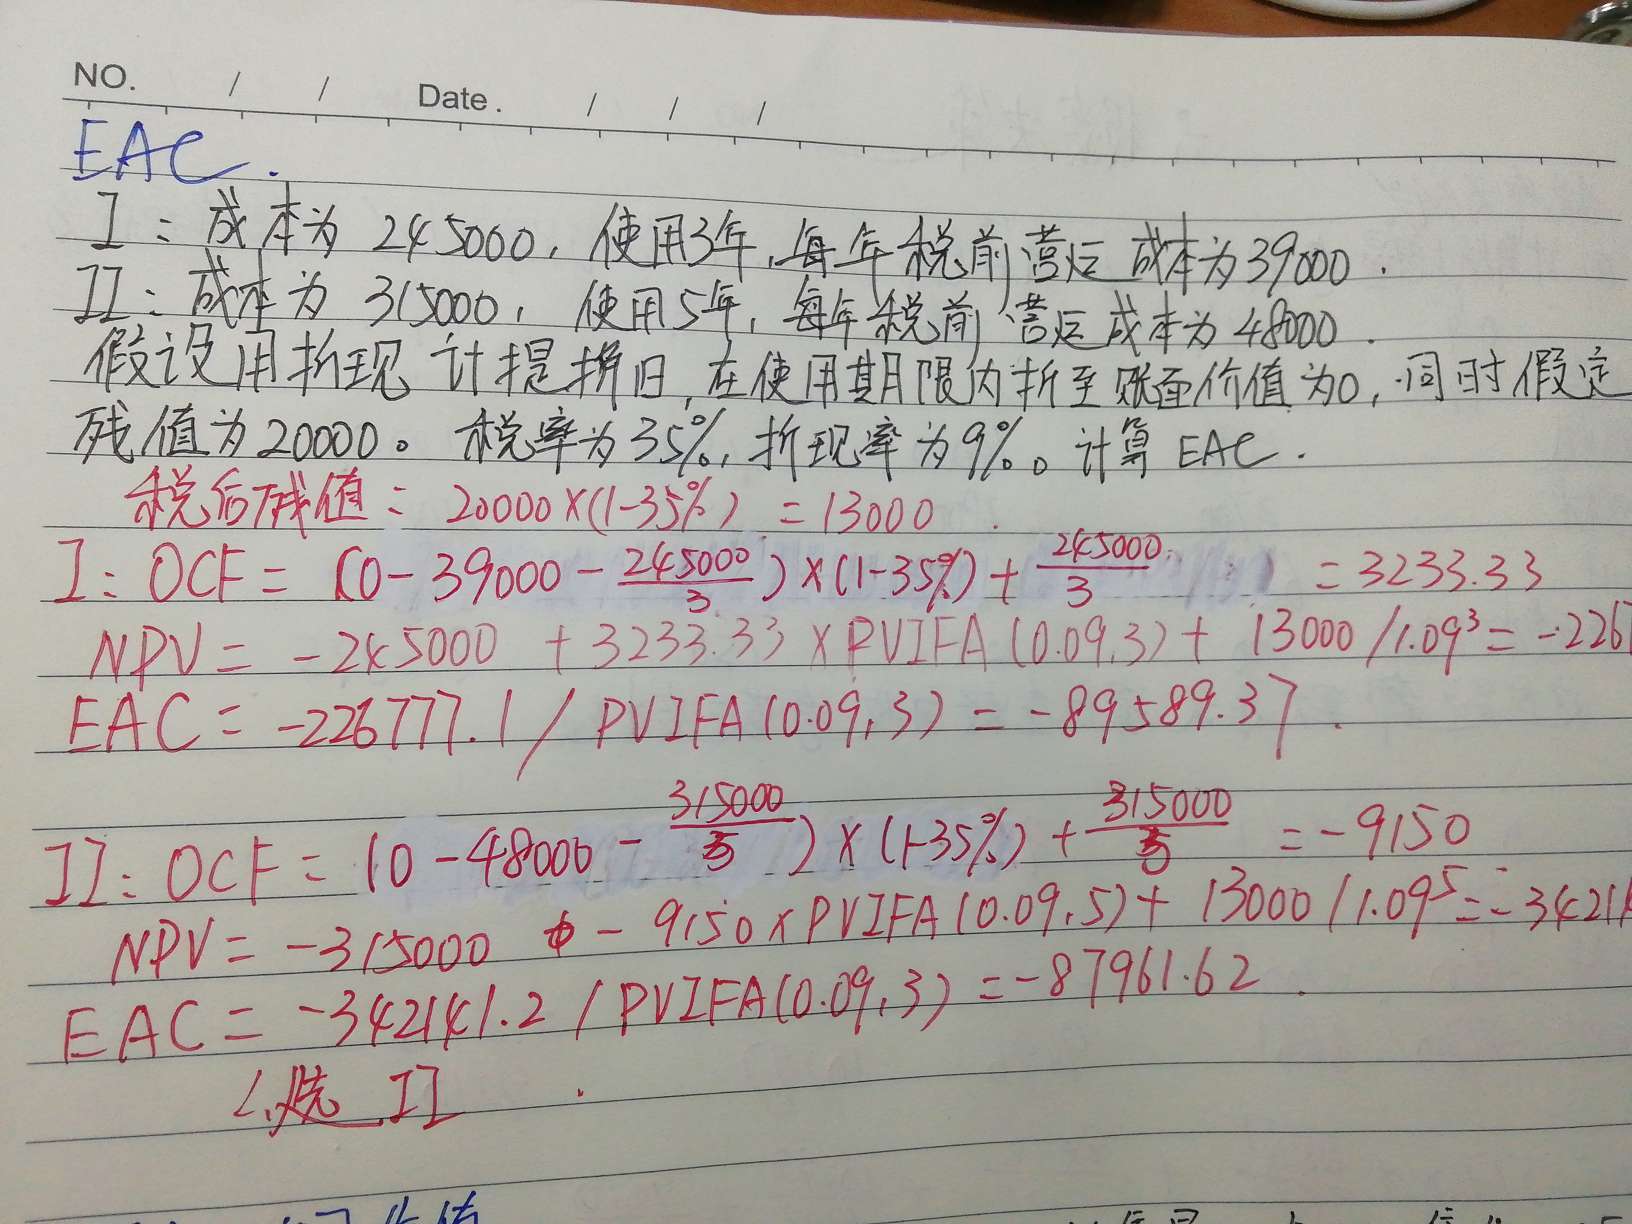 NO. / / Date. / / /
EAC.
I: 成本为 245000, 使用3年, 每年税前营运成本为39000.
II: 成本为 315000, 使用5年, 每年税前营运成本为48000.
假设用折现计提折旧, 在使用期限内折至账面价值为0, 同时假定
残值为20000。税率为35%, 折现率为9%。计算 EAC.
税后残值 = 20000×(1-35%) = 13000.
I: OCF = (0-39000-245000/3)×(1-35%)+245000/3 = 3233.33
NPV = -245000 + 3233.33×PVIFA(0.09,3)+ 13000/1.09³ = -2267
EAC = -226777.1/PVIFA(0.09,3) = -89589.37.
II: OCF = (0-48000-315000/5)×(1-35%)+315000/5 = -9150
NPV = -315000 - 9150×PVIFA(0.09,5)+ 13000/1.09⁵ = -34214
EAC = -342141.2/PVIFA(0.09,3) = -87961.62.
∴选 II